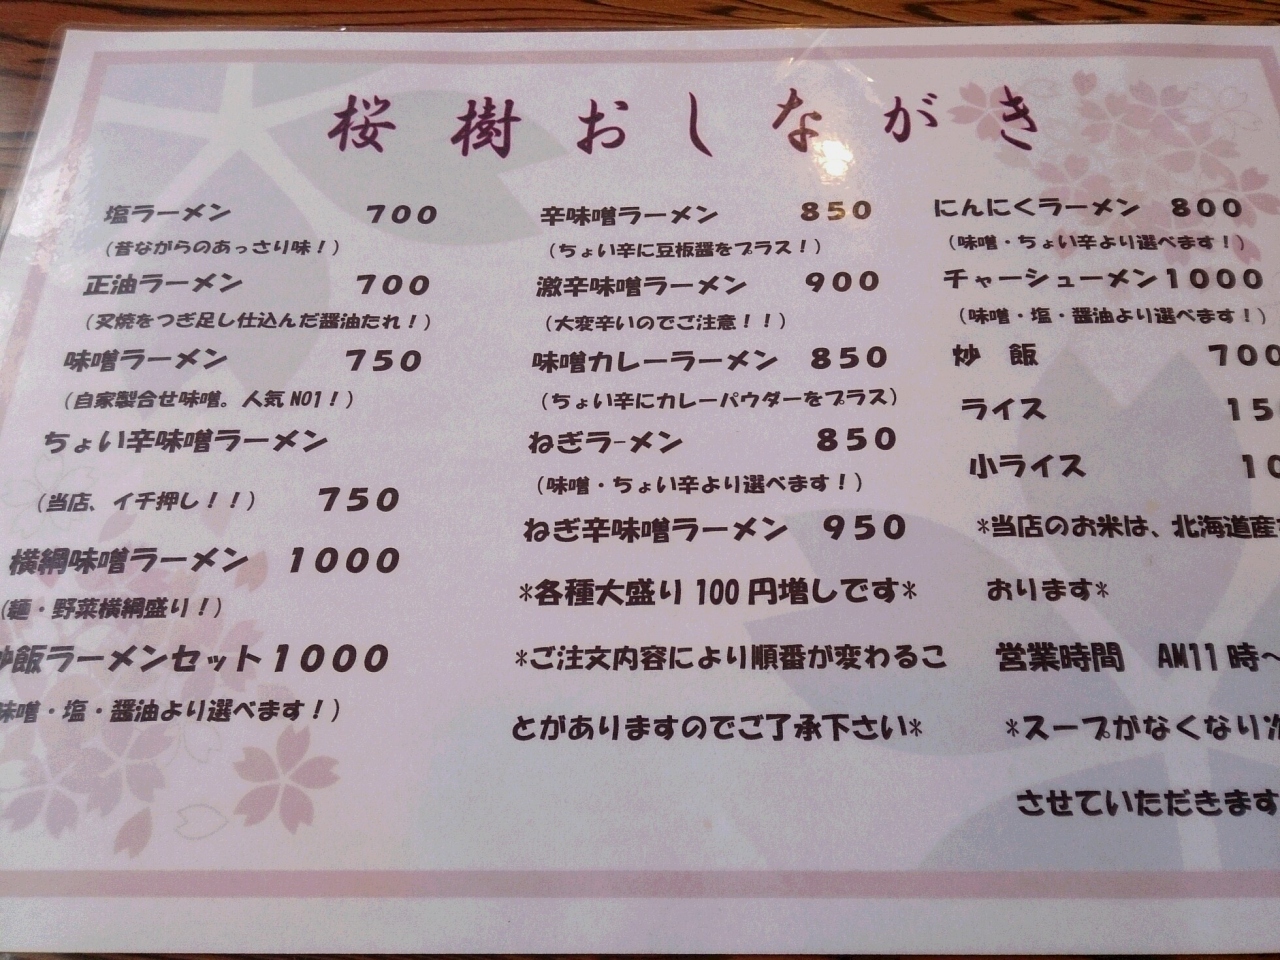 桜樹おしながき
塩ラーメン 700
（昔ながらのあっさり味！）
正油ラーメン 700
（叉焼をつぎ足し仕込んだ醤油たれ！）
味噌ラーメン 750
（自家製合せ味噌。人気NO1！）
ちょい辛味噌ラーメン
（当店、イチ押し！！） 750
横綱味噌ラーメン 1000
（麺・野菜横綱盛り！）
炒飯ラーメンセット 1000
味噌・塩・醤油より選べます！）
辛味噌ラーメン 850
（ちょい辛に豆板醤をプラス！）
激辛味噌ラーメン 900
（大変辛いのでご注意！！）
味噌カレーラーメン 850
（ちょい辛にカレーパウダーをプラス）
ねぎラーメン 850
（味噌・ちょい辛より選べます！）
ねぎ辛味噌ラーメン 950
*各種大盛り100円増しです*
*ご注文内容により順番が変わるこ
とがありますのでご了承下さい*
にんにくラーメン 800
（味噌・ちょい辛より選べます！）
チャーシューメン 1000
（味噌・塩・醤油より選べます！）
炒 飯 700
ライス 15
小ライス 10
*当店のお米は、北海道産
おります*
営業時間 AM11時～
*スープがなくなり
させていただきます